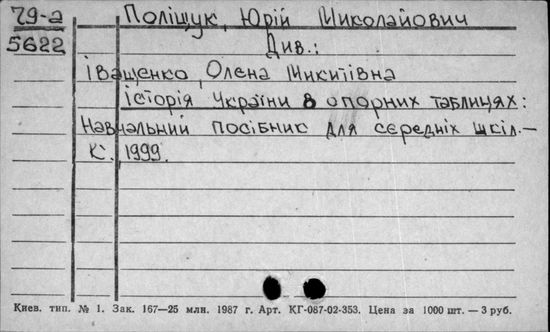 79-а Поліщук, Юрій Миколайович
5622 Див.:
Іващенко, Олена Микитівна
Історія України в опорних таблицях:
Навчальний посібник для середніх шкіл.—
К. 1999.
Киев. тип. № 1. Зак. 167—25 млн. 1987 г. Арт. КГ-087-02-353. Цена за 1000 шт. — 3 руб.